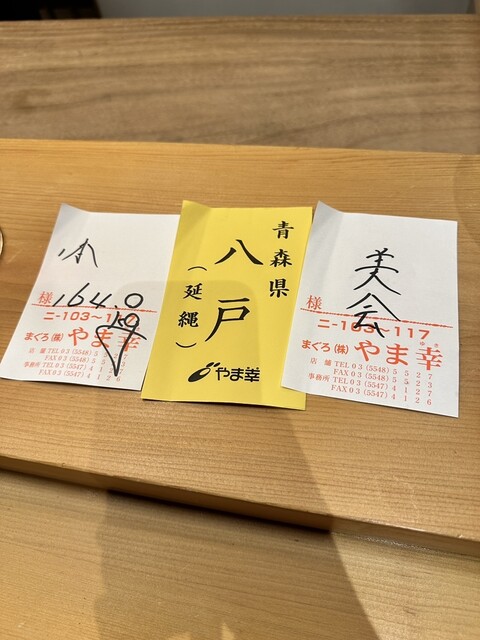 様
164.0
まぐろ(株)やま幸
店舗 TEL 03(5548)5
FAX 03(5548)5
事務所 TEL 03(5547)4126
FAX 03(5547)4126
青森県
八戸
(延縄)
やま幸
美会
様
ニ-103~117
まぐろ(株)やま幸
ゆき
店舗 TEL 03(5548)5527
FAX 03(5548)5523
事務所 TEL 03(5547)4127
FAX 03(5547)4126